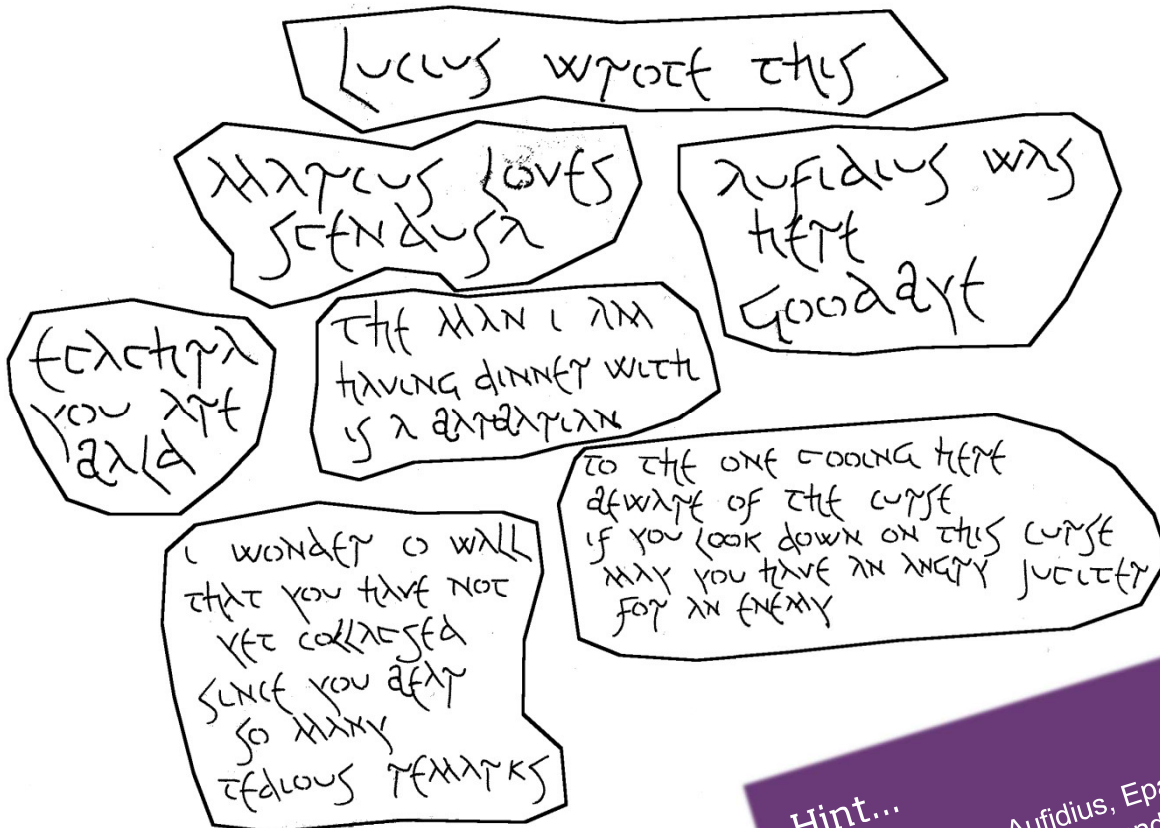 lucius wrote this
marcius loves
spendusa
aufidius was
here
goodbye
epaphra
you are
bald
the man i am
having dinner with
is a barbarian
to the one pooing here
beware of the curse
if you look down on this curse
may you have an angry jupiter
for an enemy
i wonder o wall
that you have not
yet collapsed
since you bear
so many
tedious remarks
Hint...
Aufidius,